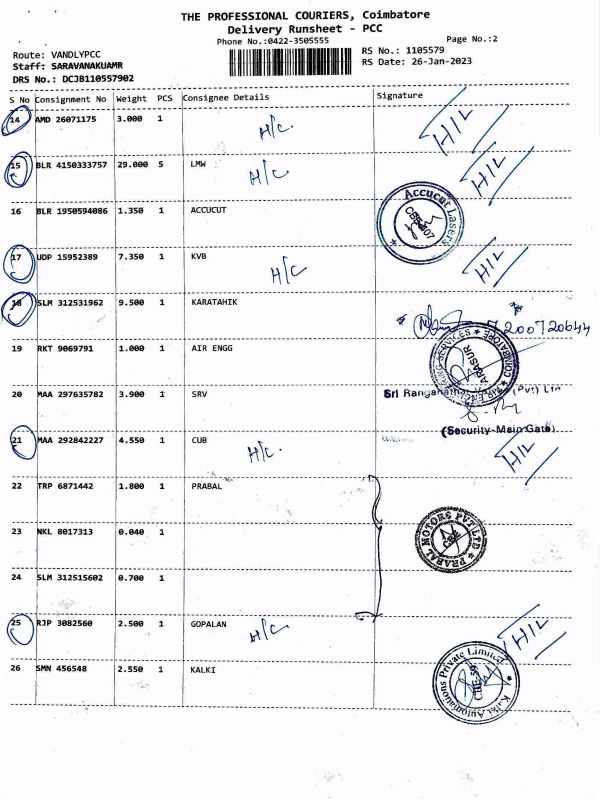 THE PROFESSIONAL COURIERS, Coimbatore
Delivery Runsheet - PCC
Phone No.:0422-3505555
Page No.:2
Route: VANDLYPCC
RS No.: 1105579
Staff: SARAVANAKUAMR
RS Date: 26-Jan-2023
DRS No.: DCJB110557902
S No Consignment No Weight PCS Consignee Details Signature
14 AMD 26071175 3.000 1 H/C. H/L
15 BLR 4150333757 29.000 5 LMW H/C H/L
16 BLR 1950594086 1.350 1 ACCUCUT Accucut Lasers
17 UDP 15952389 7.350 1 KVB H/C H/L
18 SLM 312531962 9.500 1 KARATAHIK 7200720644
19 RKT 9069791 1.000 1 AIR ENGG COIMBATORE ARASUR
20 MAA 297635782 3.900 1 SRV Sri (Pvt) Ltd
(Security-Main Gate)
21 MAA 292842227 4.550 1 CUB H/C. H/L
22 TRP 6871442 1.800 1 PRABAL
23 NKL 8017313 0.040 1 PRABAL MOTORS PVT LTD CBE
24 SLM 312515602 0.700 1
25 RJP 3082560 2.500 1 GOPALAN H/C H/L
26 SMN 456548 2.550 1 KALKI Kalki Automations Private Limited CBE-59